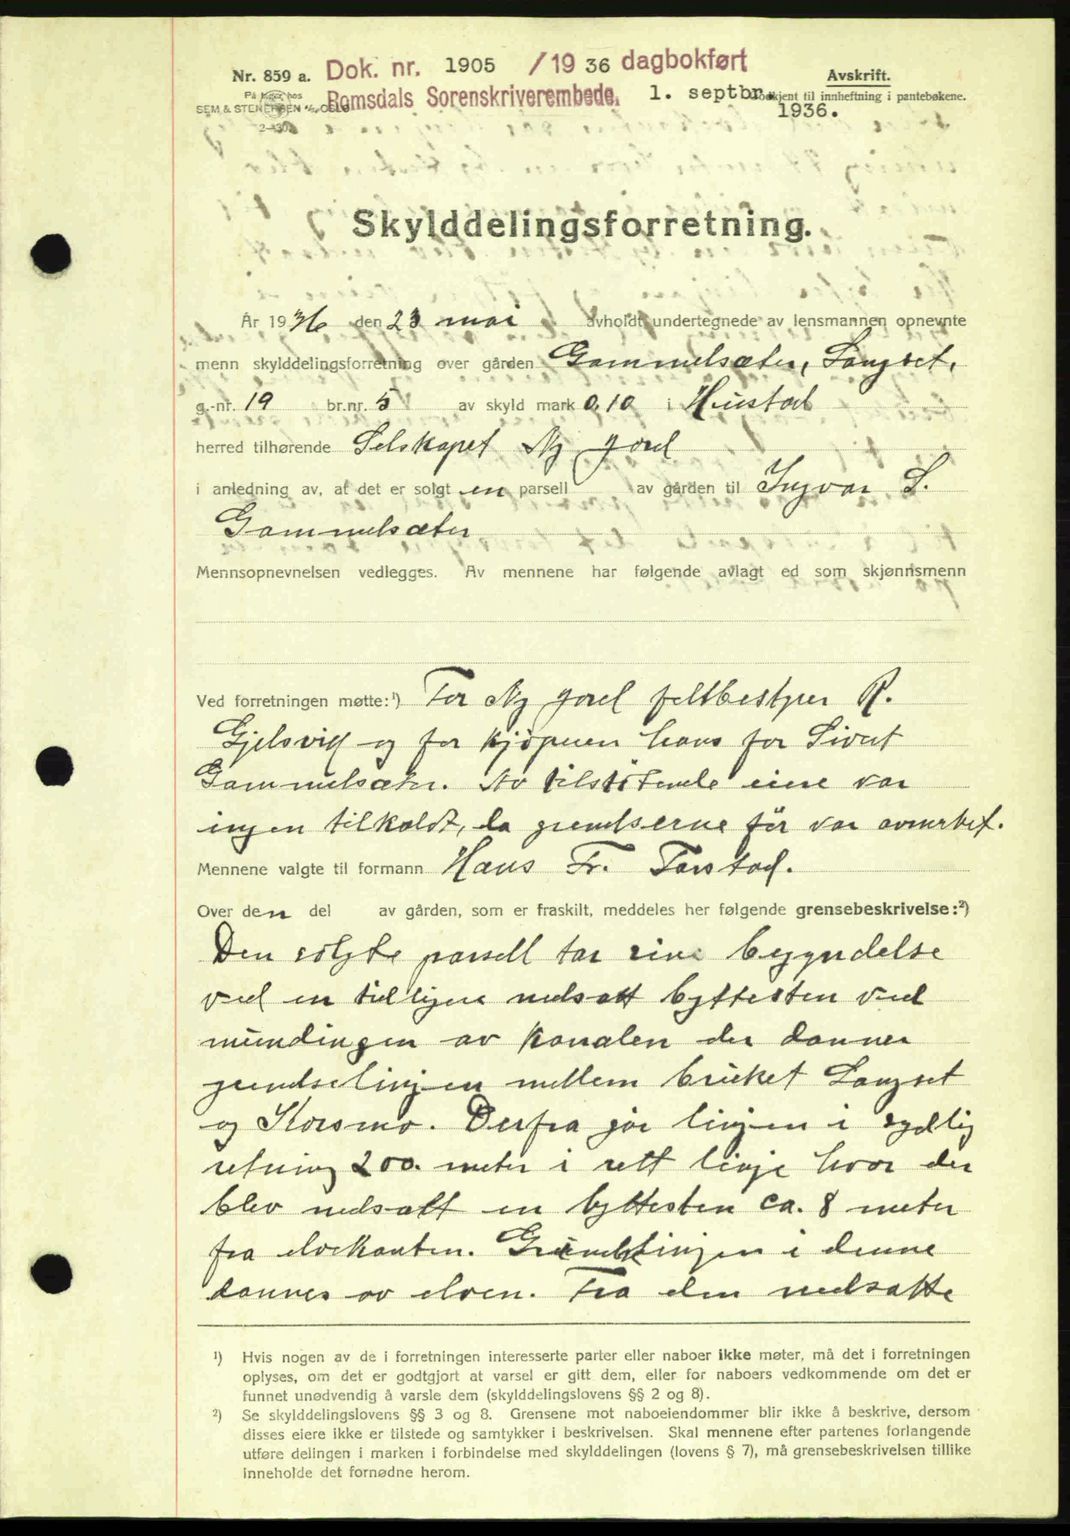 Nr. 859 a. Dok. nr. 1905 /19 36 dagbokført
Avskrift.
På lager hos
SEM & STENERSEN A/S, OSLO
Romsdals Sorenskriverembede, 1. septbr.
Godkjent til innheftning i pantebøkene.
1936.
Skylddelingsforretning.
År 1936 den 23 mai avholdt undertegnede av lensmannen opnevnte
menn skylddelingsforretning over gården Gammelsæter, Langset,
g.-nr. 19 br.nr. 5 av skyld mark 0,10 i Hustad
herred tilhørende Selskapet Ny jord
i anledning av, at det er solgt en parsell av gården til Ingvar S.
Gammelsæter
Mennsopnevnelsen vedlegges. Av mennene har følgende avlagt ed som skjønnsmenn
Ved forretningen møtte:¹) For Ny jord feltbestyrer R.
Gjelsvik og for kjöperen hans far Sivert
Gammelsæter. Av tilstötende eiere var
ingen tilkaldt, da grendserne för var avmerket.
Mennene valgte til formann Hans Fr. Farstad.
Over den del av gården, som er fraskilt, meddeles her følgende grensebeskrivelse:²)
Den solgte parsell tar sin begyndelse
ved en tidligere nedsatt byttesten ved
mundingen av kanalen der danner
grendselinjen mellem bruket Langset
og Korsmo. Derfra går linjen i sydlig
retning 200 meter i rett linje hvor der
blev nedsatt en byttesten ca. 8 meter
fra elvekanten. Grendselinjen i denne
dannes av elven. Fra den nedsatte
¹) Hvis nogen av de i forretningen interesserte parter eller naboer ikke møter, må det i forretningen
oplyses, om det er godtgjort at varsel er gitt dem, eller for naboers vedkommende om det er
funnet unødvendig å varsle dem (skylddelingslovens §§ 2 og 8).
²) Se skylddelingslovens §§ 3 og 8. Grensene mot naboeiendommer blir ikke å beskrive, dersom
disses eiere ikke er tilstede og samtykker i beskrivelsen. Skal mennene efter partenes forlangende
utføre delingen i marken i forbindelse med skylddelingen (lovens § 7), må grensebeskrivelsen tillike
inneholde det fornødne herom.